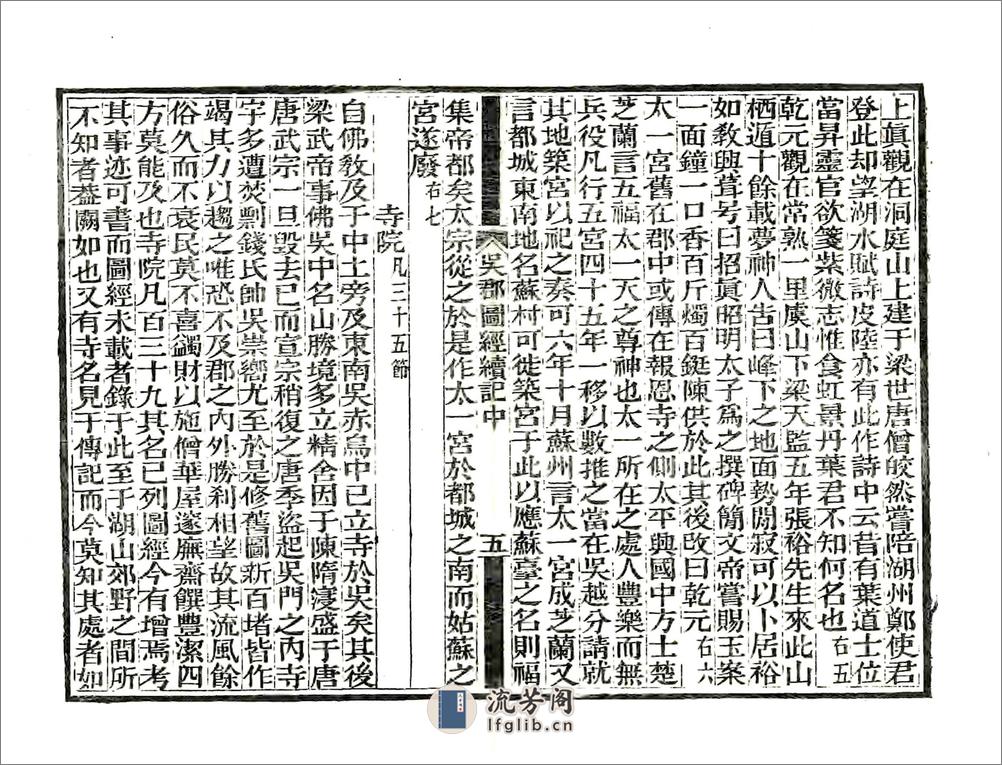 上眞觀在洞庭山上建于梁世唐僧皎然嘗陪湖州鄭使君
登此却望湖水賦詩皮陸亦有此作詩中云昔有葉道士位
當昇靈官欲箋紫微志惟食虹景丹葉君不知何名也右五
乾元觀在常熟一里虞山下梁天監五年張裕先生來此山
栖遁十餘載夢神人告曰峰下之地面勢閒寂可以卜居裕
如敎興葺号曰招眞昭明太子爲之撰碑簡文帝嘗賜玉案
一面鐘一口香百斤燭百鋌陳供於此其後改曰乾元右六
太一宮舊在郡中或傳在報恩寺之側太平興國中方士楚
芝蘭言五福太一天之尊神也太一所在之處人豐樂而無
兵役凡行五宮四十五年一移以數推之當在吳越分請就
其地築宮以祀之奏可六年十月蘇州言太一宮成芝蘭又
言都城東南地名蘇村可徙築宮于此以應蘇臺之名則福
吳郡圖經續記中
五
集帝都矣太宗從之於是作太一宮於都城之南而姑蘇之
宮遂廢右七
寺院凡三十五節
自佛敎及于中土旁及東南吳赤烏中已立寺於吳矣其後
梁武帝事佛吳中名山勝境多立精舍因于陳隋寖盛于唐
唐武宗一旦毀去已而宣宗稍復之唐季盜起吳門之內寺
宇多遭焚剽錢氏帥吳崇嚮尤至於是修舊圖新百堵皆作
竭其力以趨之唯恐不及郡之內外勝利相望故其流風餘
俗久而不衰民莫不喜蠲財以施僧華屋邃廡齋饌豐潔四
方莫能及也寺院凡百三十九其名已列圖經今有增焉考
其事迹可書而圖經未載者錄于此至于湖山郊野之間所
不知者葢闕如也又有寺名見于傳記而今莫知其處者如
流芳阁
lfglib.cn